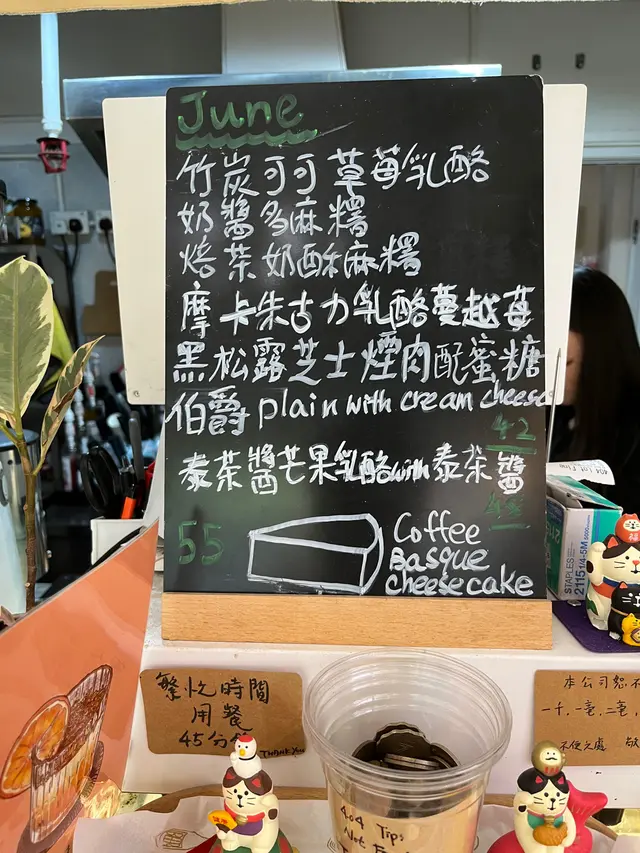 June
竹炭可可草莓乳酪
奶醬多麻糬
焙茶奶酥麻糬
摩卡朱古力乳酪蔓越莓
黑松露芝士煙肉配蜜糖
伯爵 plain with cream cheese
42
泰茶醬芒果乳酪with泰茶醬
55
Coffee
Basque
cheesecake
STAPLES
2115 1/4-5M
5000
繁忙時間
用餐
45分鐘
THANK YOU
本公司恕不
一千.一毫.二毫.
不便之處 敬
404 Tips
Not F
福